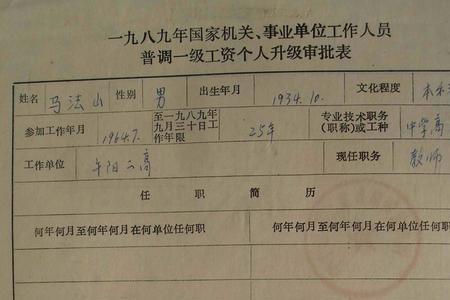 一九八九年国家机关、事业单位工作人员
普调一级工资个人升级审批表
姓名 马法山 性别 男 出生年月 1934.10. 文化程度 本科
参加工作年月 1964.7. 至一九八九年九月三十日工作年限 25年 专业技术职务(职称)或工种 中学高
工作单位 午阳二高 现任职务 教师
任职简历
何年何月至何年何月在何单位任何职 何年何月至何年何月在何单位任何职